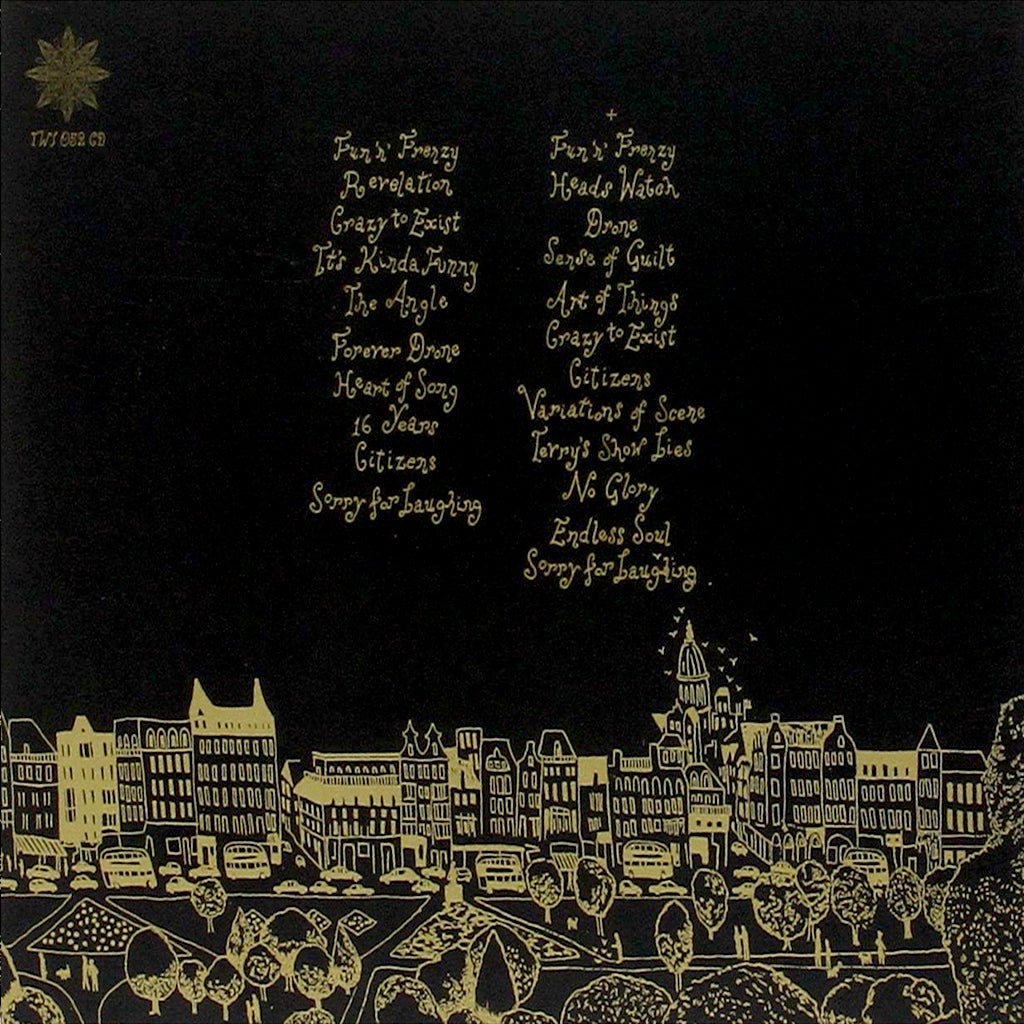 TWI 052 CD
Fun 'n' Frenzy
Revelation
Crazy to Exist
It's Kinda Funny
The Angle
Forever Drone
Heart of Song
16 Years
Citizens
Sorry for Laughing
+
Fun 'n' Frenzy
Heads Watch
Drone
Sense of Guilt
Art of Things
Crazy to Exist
Citizens
Variations of Scene
Terry's Show Lies
No Glory
Endless Soul
Sorry for Laughing